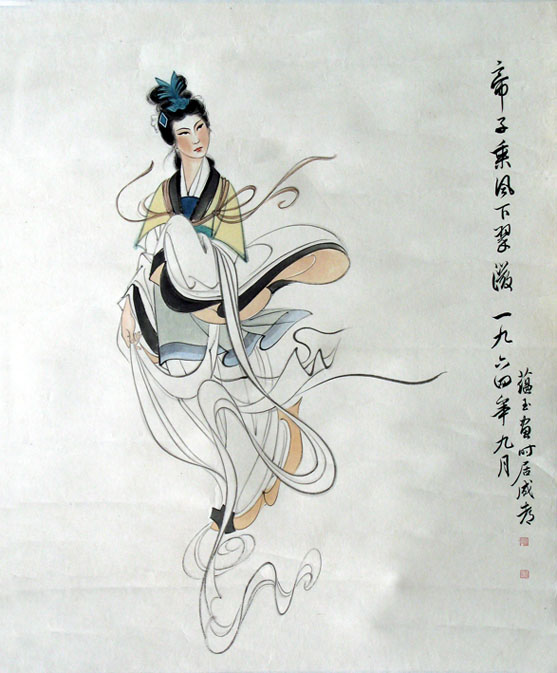 帝子乘风下翠微 一九六四年九月
蕴玉画时居成都